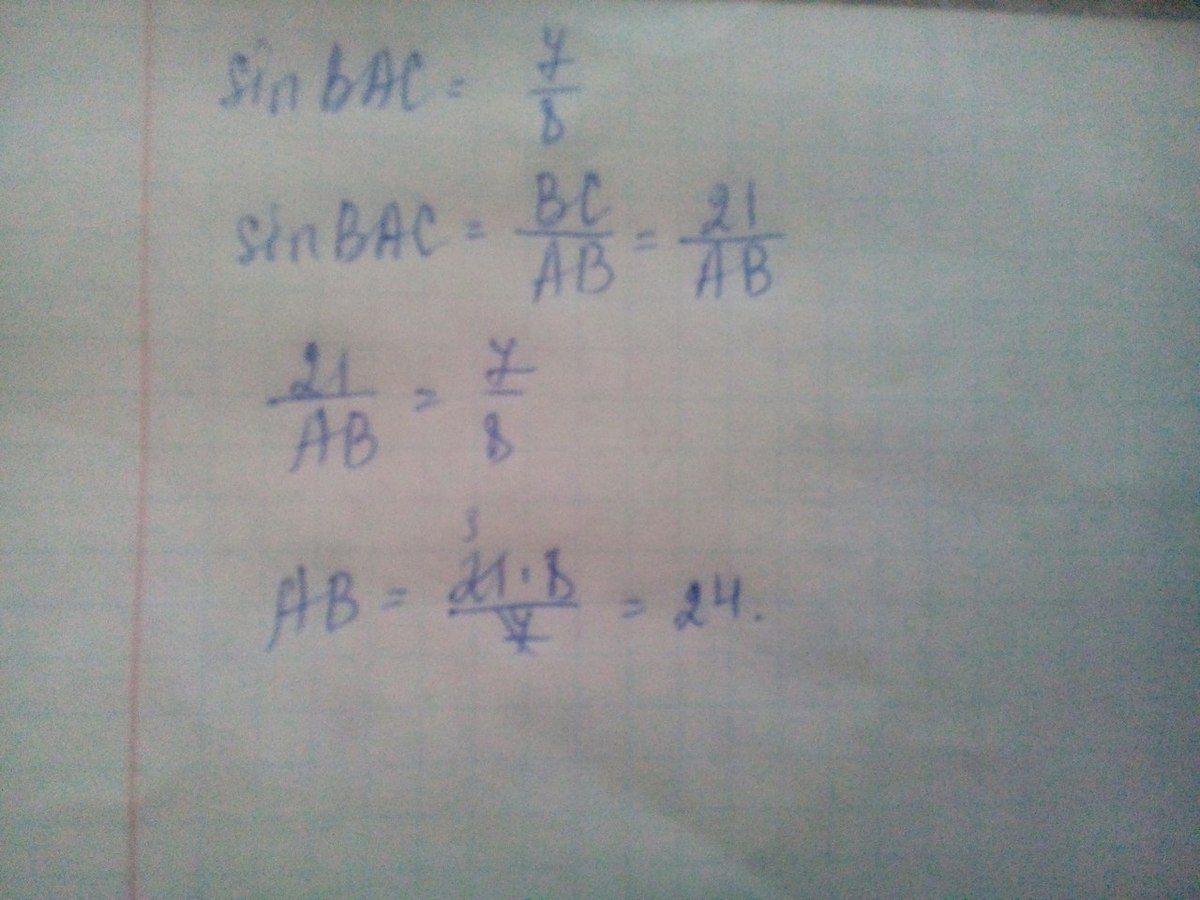 sin BAC = 7/8
sin BAC = BC/AB = 21/AB
21/AB = 7/8
3
AB = 21·8/7 = 24.